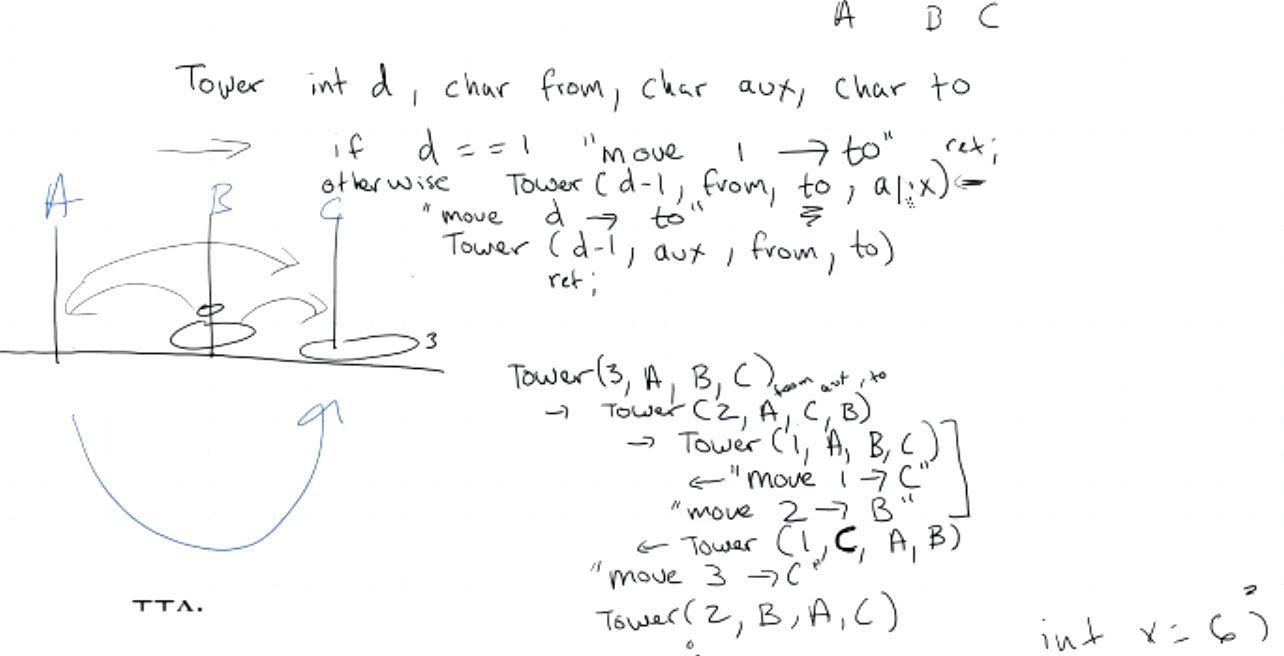 A B C
Tower int d, char from, char aux, char to
if d == 1 "move 1 → to" ret;
otherwise Tower (d-1, from, to, aux) ←
"move d → to"
Tower (d-1, aux, from, to)
ret;
A B C
3
Tower(3, A, B, C) from aut, to
→ Tower (2, A, C, B)
→ Tower (1, A, B, C)
← "move 1 → C"
"move 2 → B"
← Tower (1, C, A, B)
"move 3 → C"
Tower(2, B, A, C)
int x = 6